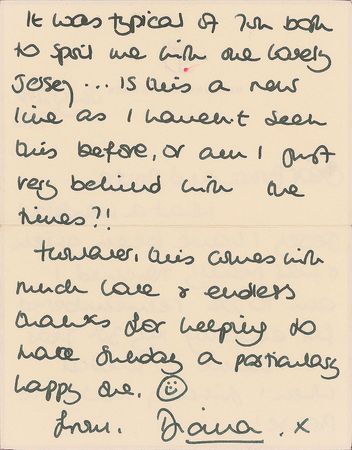 It was typical of you both
to spoil me with the lovely
jersey... Is this a new
line as I haven't seen
this before, or am I just
very behind with the
times?!
However, this comes with
much love & endless
thanks for helping to
make Sunday a particularly
happy one. ☺
from. Diana. x